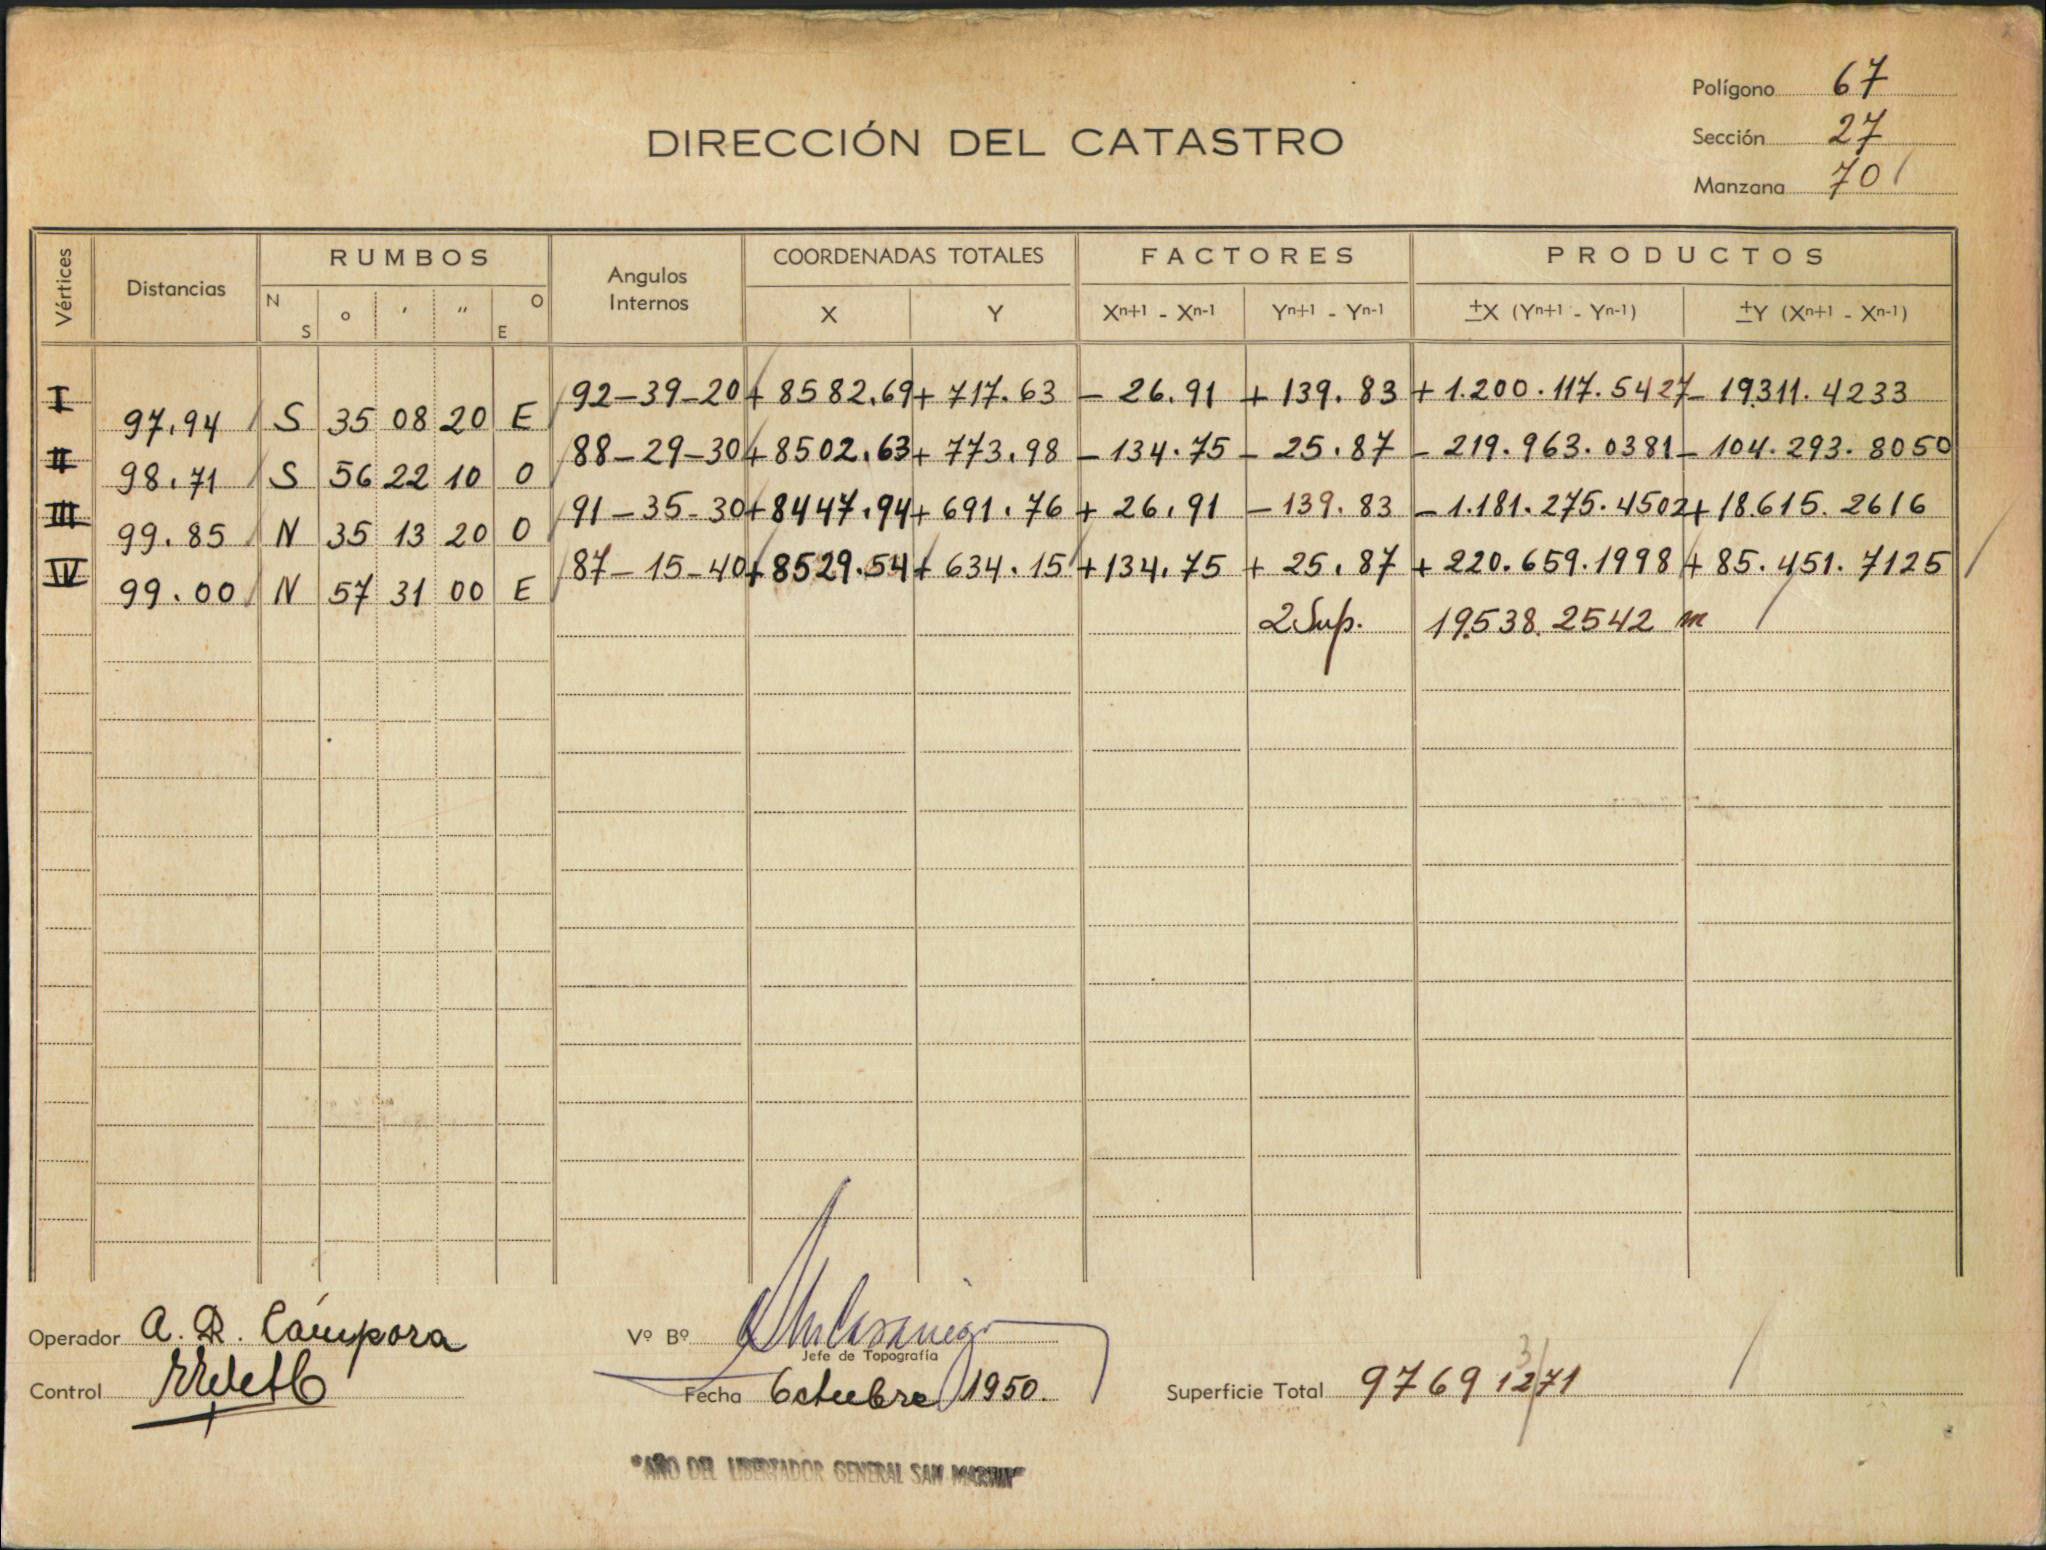 Polígono 67
DIRECCIÓN DEL CATASTRO
Sección 27
Manzana 70
Vértices Distancias RUMBOS N S ° ' " O E Angulos Internos COORDENADAS TOTALES X Y FACTORES Xn+1 - Xn-1 Yn+1 - Yn-1 PRODUCTOS ±X (Yn+1 - Yn-1) ±Y (Xn+1 - Xn-1)
I 92-39-20 + 8582.69 + 717.63 - 26.91 + 139.83 + 1.200.117.5427 - 19311.4233
97.94 S 35 08 20 E
II 88-29-30 + 8502.63 + 773.98 - 134.75 - 25.87 - 219.963.0381 - 104.293.8050
98.71 S 56 22 10 O
III 91-35-30 + 8447.94 + 691.76 + 26.91 - 139.83 - 1.181.275.4502 + 18.615.2616
99.85 N 35 13 20 O
IV 87-15-40 + 8529.54 + 634.15 + 134.75 + 25.87 + 220.659.1998 + 85.451.7125
99.00 N 57 31 00 E
2 Sup. 19.538.2542 m
Operador A. R. Cámpora
Vº Bº
Jefe de Topografía
Control
Fecha Octubre 1950.
Superficie Total 9769 1271
3
"AÑO DEL LIBERTADOR GENERAL SAN MARTIN"